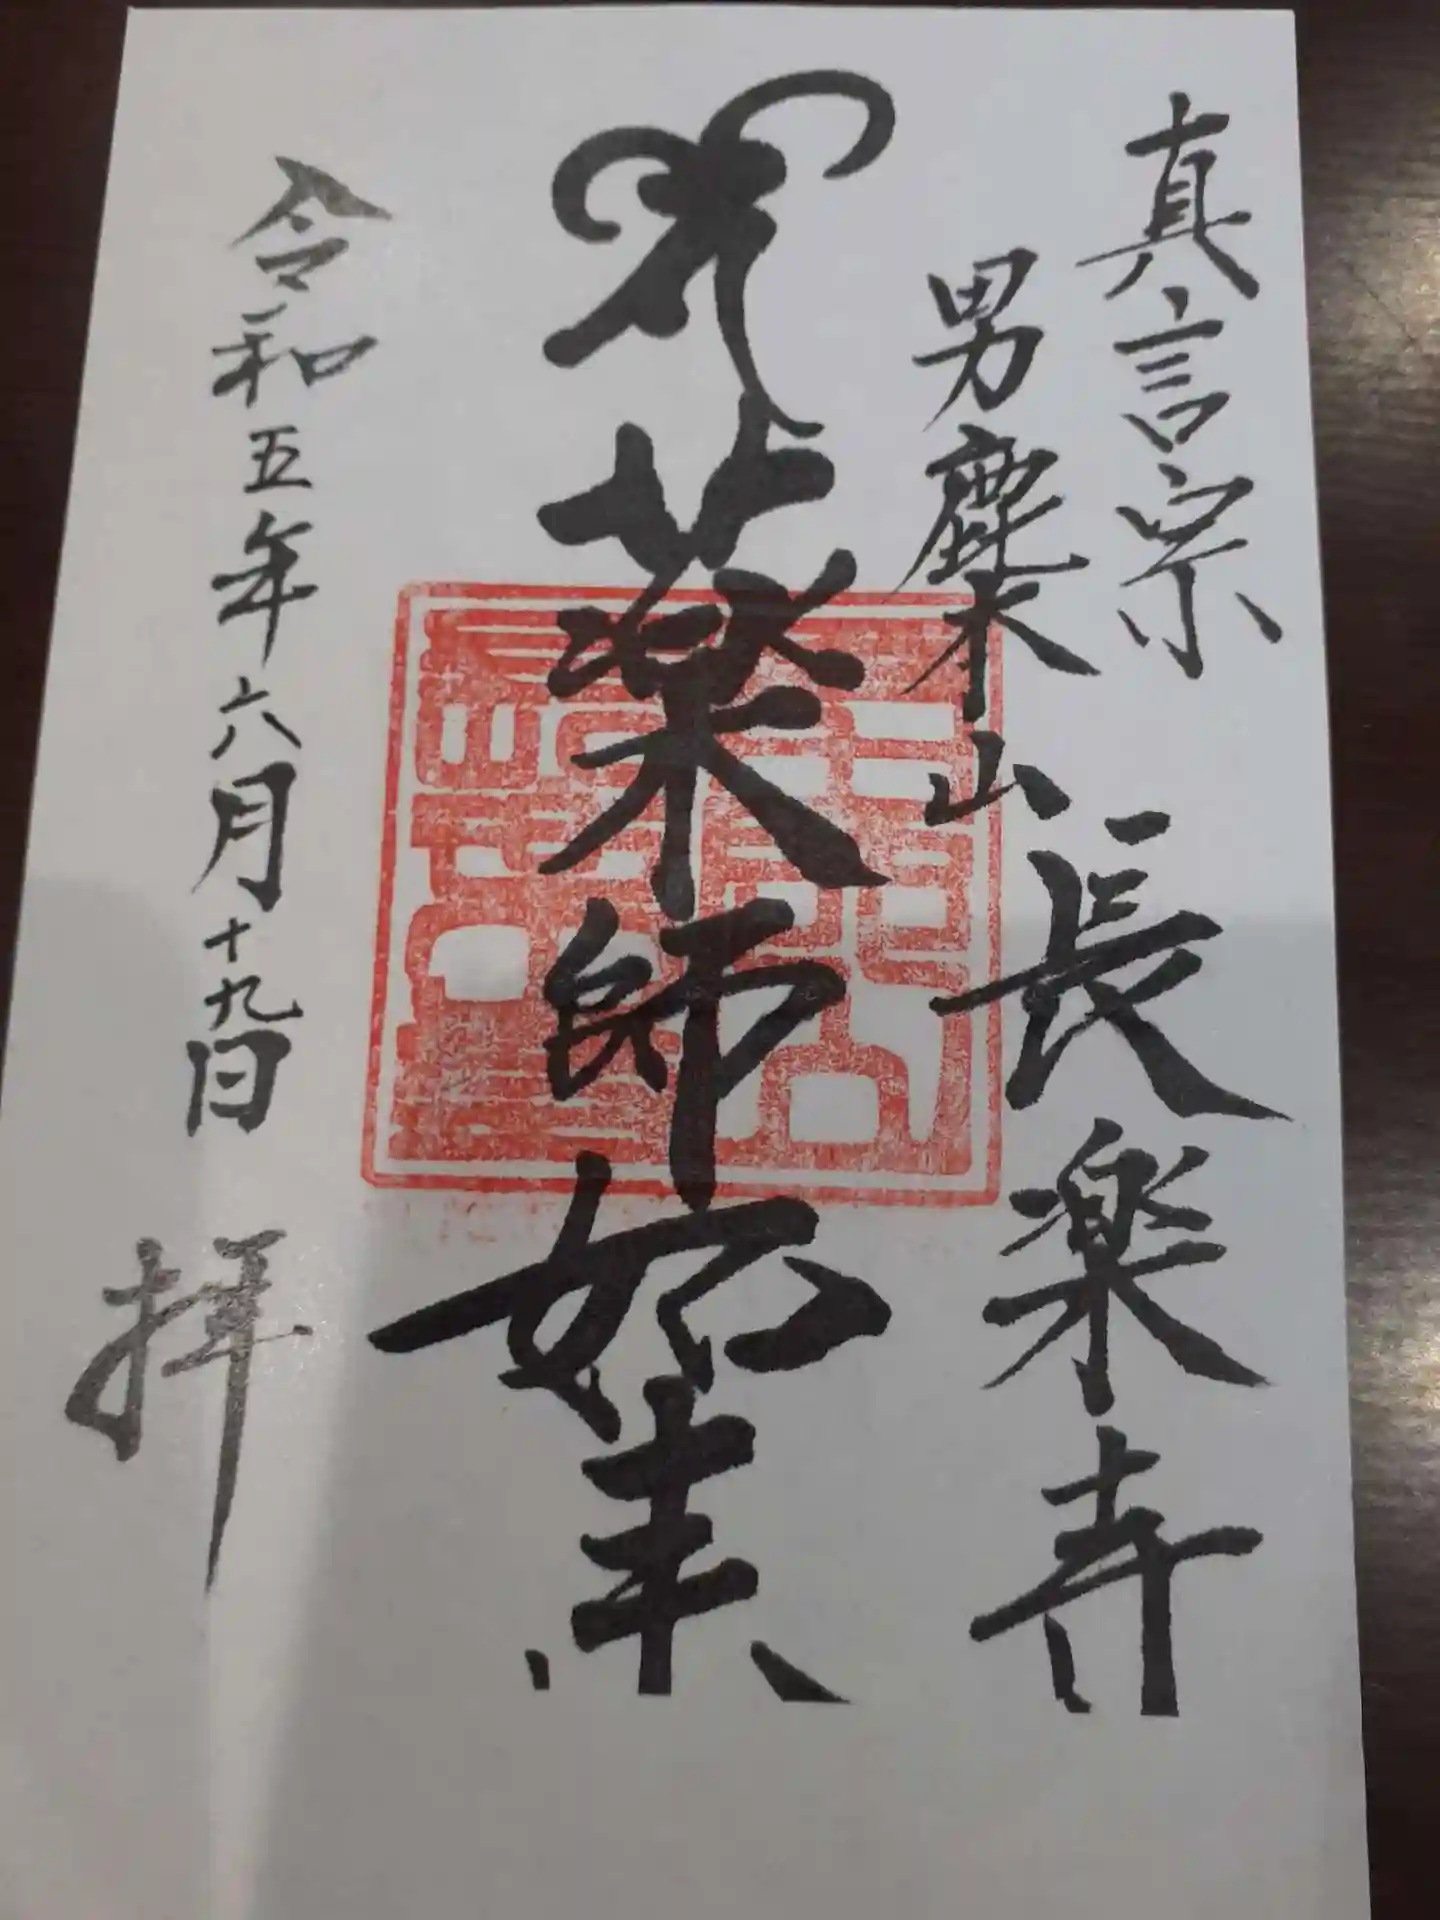 真言宗
男麁木山
長楽寺
薬師如来
令和五年六月十九日
拝